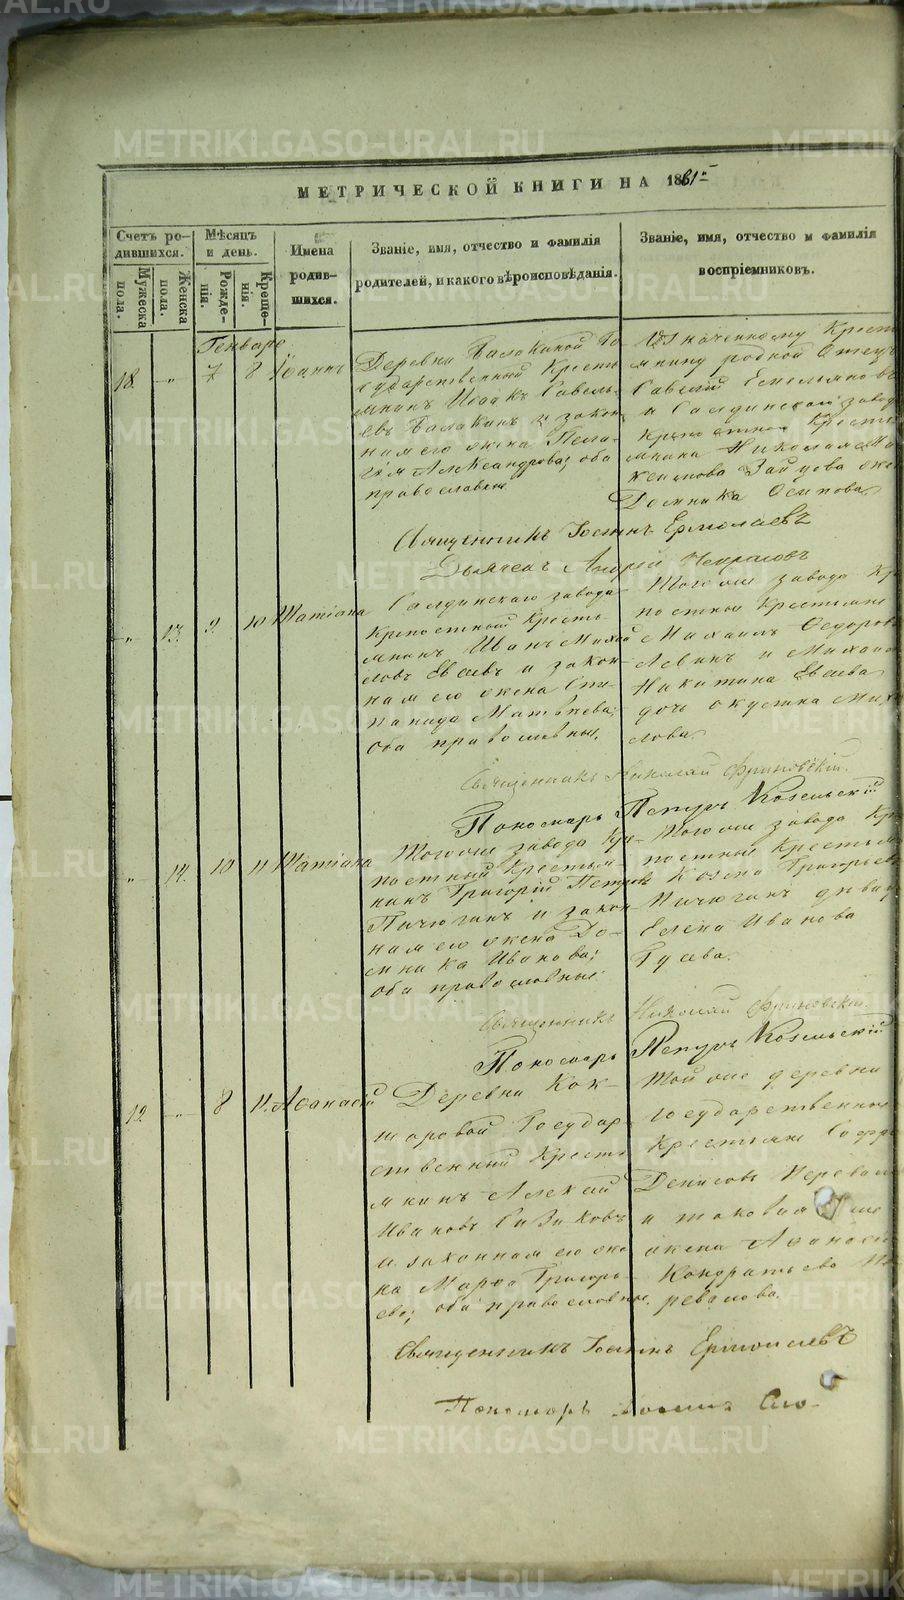 МЕТРИЧЕСКОЙ КНИГИ НА 1861й
Счетъ ро-
дившихся.
Мужеска
пола.
Женска
пола.
Мѣсяцъ
и день.
Рожде-
нія.
Креще-
нія.
Имена
родив-
шихся.
Званіе, имя, отчество и фамилія
родителей, и какого вѣроисповѣданія.
Званіе, имя, отчество и фамилія
воспріемниковъ.
Генваря
18. - " 7 8 Іоаннъ
Деревни Балакиной Го
сударственный Кресть
янинъ Исаакъ Савель-
евъ Балакинъ и закон
ная его жена Пела-
гія Александрова; оба
православные
Означенному Крест
янину родной Отецъ
Савелій Емельяновъ
и Салдинскаго завода
Крѣпостнаго Кресть
янина Николая Ма
ксимова Зайцова жена
Домника Осипова
Священникъ Іоаннъ Ермолаевъ
Дьячекъ Андрей Некрасовъ
- " 13. 9. 10 Татіана
Салдинскаго завода
Крѣпостный Кресть-
янинъ Иванъ Михай
ловъ Евсевъ и закон-
ная его жена Сте-
панида Матвѣева;
оба православные.
Того же завода Кр
постной Крестьяни
Михаилъ Федоровъ
Левинъ и Михаила
Никитина Евсева
дочь
лова
Священникъ Николай Фриновскій.
Пономарь Петръ Козельскій
" 14. 10 11 Татіана
Того же завода Крѣ-
постный Крестьян-
инъ Григорій Петровъ
Пичюгинъ и закон-
ная его жена До-
мника Иванова;
оба православные
Того же завода Крѣ
постные Крестьяне
Козма Григорьевъ
Пичюгинъ дивица
Елена Иванова
Гусева.
Священникъ Николай Фриновскій.
Пономарь Петръ Козельскій
19. - " 8 11. Аѳанасій
Деревни Кок-
шаровой Государ-
ственный Кресть
янинъ Алексѣй
Ивановъ Сизиковъ
и законная его же
на Марѳа Григорь-
ева; оба православные.
Той же деревни
Государственные
Крестьяне
Денисовъ Перевало
и таковая же
жена Аѳанасі
Кондратьева Пе
ревалова.
Священникъ Іоаннъ Ермолаевъ
Пономарь
METRIKI.GASO-URAL.RU